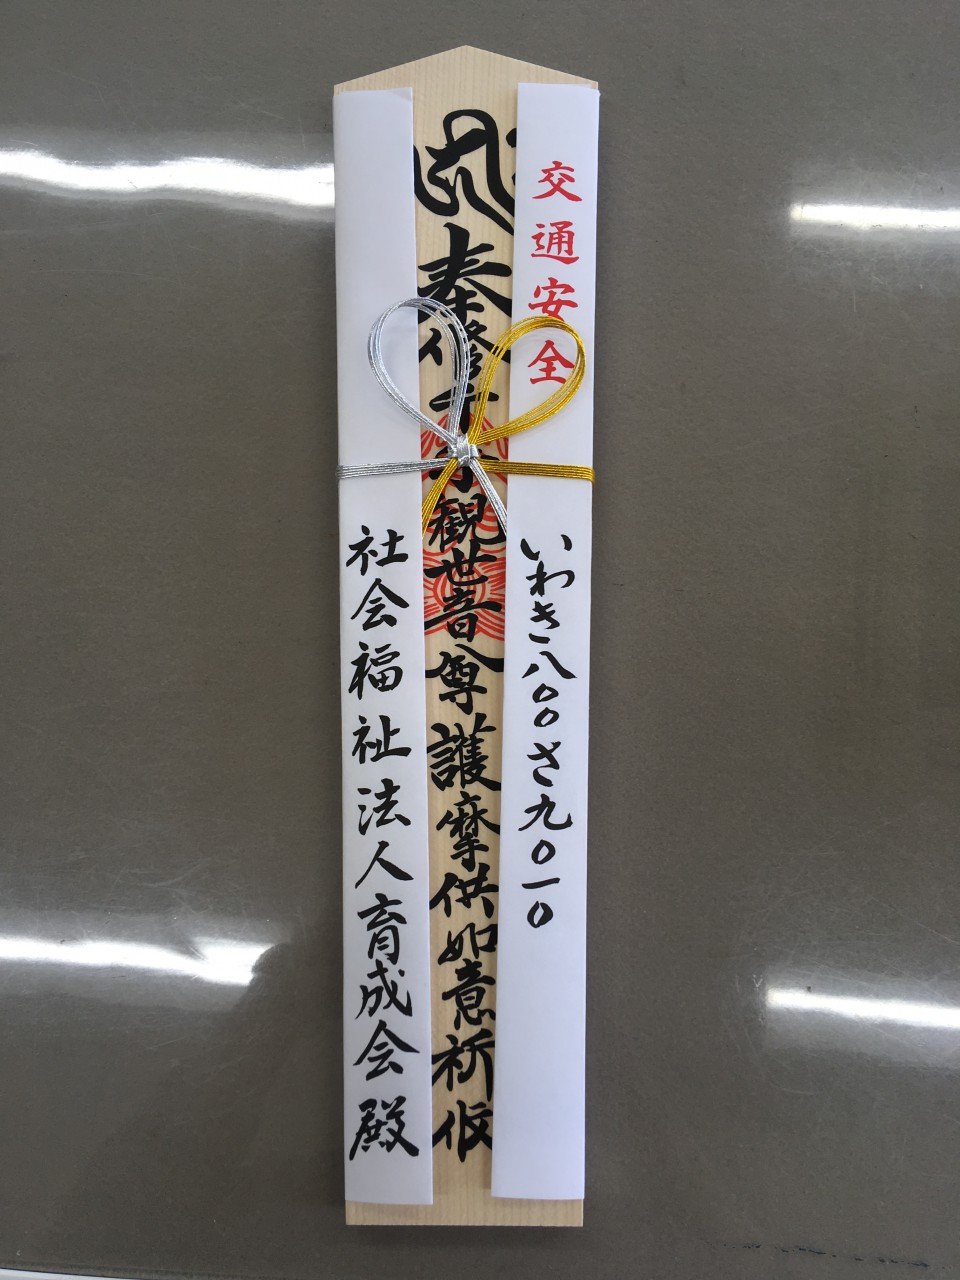 交通安全
いわき八〇〇さ九〇一〇
奉修千手観世音尊護摩供如意祈攸
社会福祉法人育成会殿